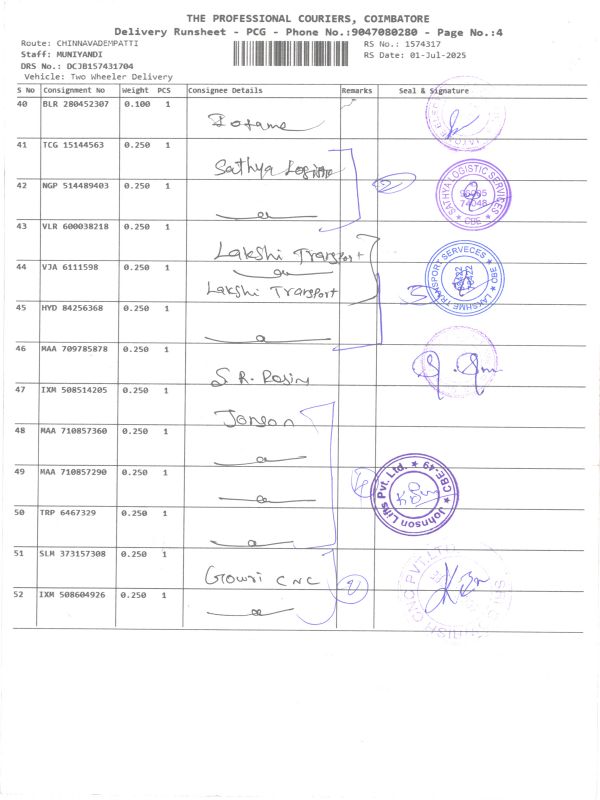 THE PROFESSIONAL COURIERS, COIMBATORE
Delivery Runsheet - PCG - Phone No.:9047080280 - Page No.:4
Route: CHINNAVADEMPATTI
RS No.: 1574317
Staff: MUNIYANDI
RS Date: 01-Jul-2025
DRS No.: DCJB157431704
Vehicle: Two Wheeler Delivery
S No Consignment No Weight PCS Consignee Details Remarks Seal & Signature
40 BLR 280452307 0.100 1
41 TCG 15144563 0.250 1
Sathya Logistic
SATHYA LOGISTIC SERVICES
CBE
42 NGP 514489403 0.250 1
2
43 VLR 600038218 0.250 1
Lakshi Transport
44 VJA 6111598 0.250 1
Lakshi Transport
3
LAKSHME TRANSPORT SERVECES
CBE
45 HYD 84256368 0.250 1
46 MAA 709785878 0.250 1
S R. Rosin
47 IXM 508514205 0.250 1
Jonson
48 MAA 710857360 0.250 1
49 MAA 710857290 0.250 1
4
Johnson Lifts Pvt. Ltd.
CBE-49
50 TRP 6467329 0.250 1
51 SLM 373157308 0.250 1
Gowri CNC
2
52 IXM 508604926 0.250 1